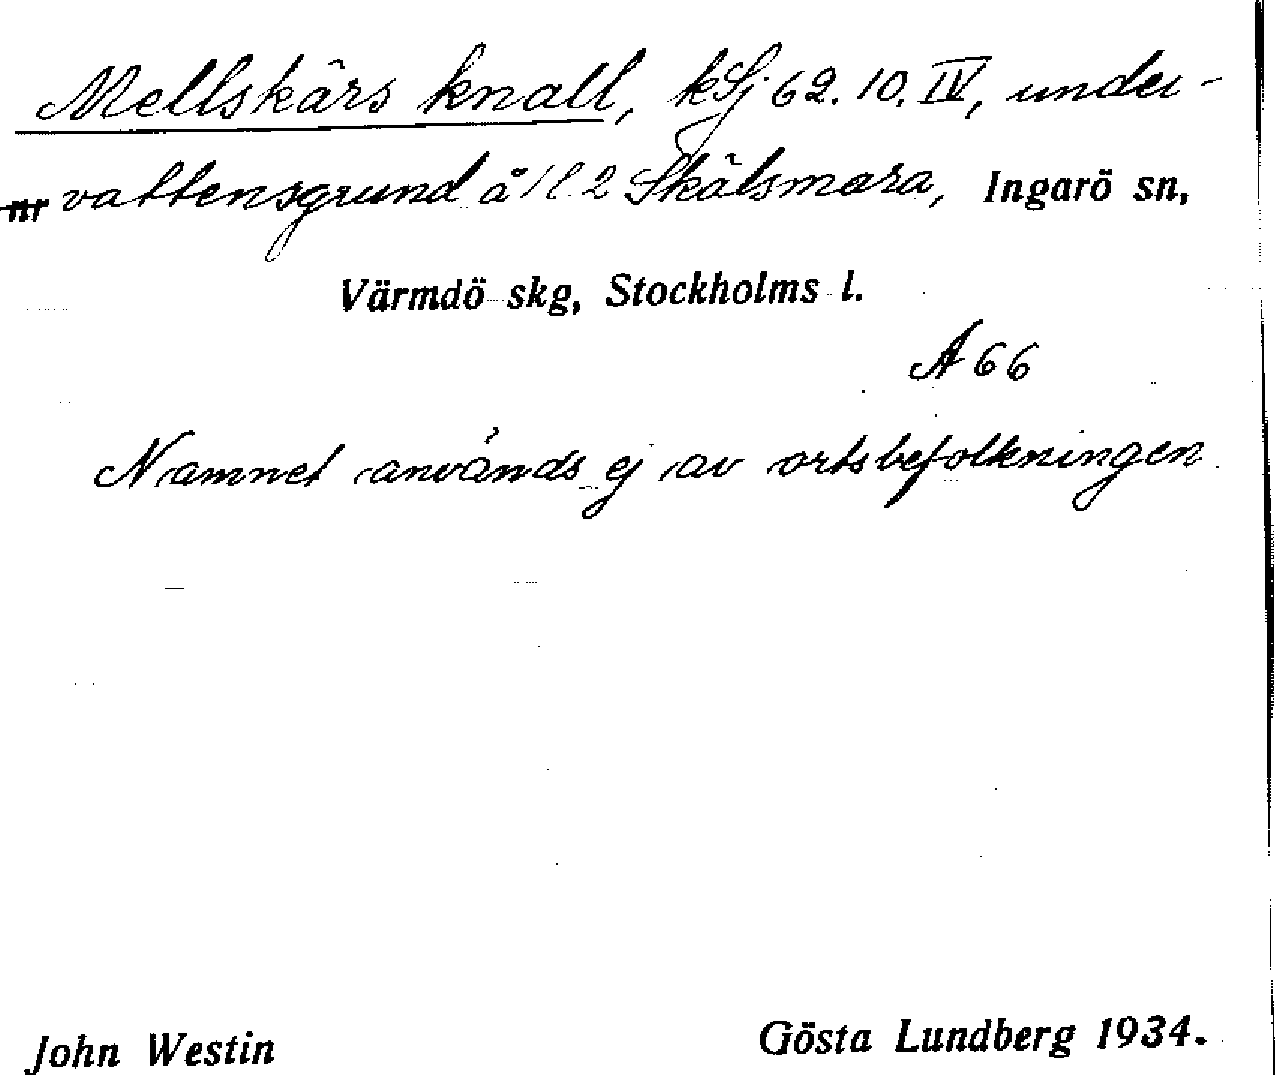 Mellskärs knall, kSj 62. 10. IV, under-
nr vattensgrund å 1 l 2 Skälsmara, Ingarö sn,
Värmdö skg, Stockholms l.
A 66
Namnet används ej av ortsbefolkningen.
John Westin Gösta Lundberg 1934.